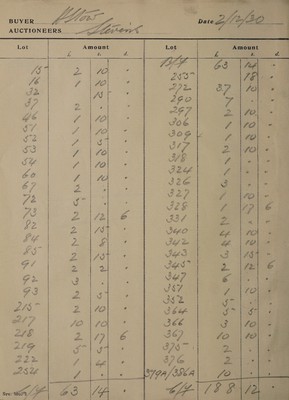 BUYER Stow Date 2/12/30
AUCTIONEERS Stevens
Lot Amount Lot Amount
£ s. d. £ s. d.
15 2 10 "
16 1 10 "
32 15 "
37 2 " "
46 1 10 "
51 1 10 "
52 1 5 "
53 1 10 "
54 1 10 "
60 1 10 "
67 2 " "
72 5 " "
73 2 12 6
82 2 15 "
84 2 8 "
85 2 15 "
91 2 2 "
92 3 " "
93 2 5 "
215 2 10 "
217 10 10 "
218 2 17 6
219 5 5 "
222 1 4 "
254 1 " "
63 14 "
B/F 63 14 "
255 18 "
272 37 10 "
290 7 " "
297 2 10 "
306 1 10 "
309 1 10 "
317 2 10 "
318 1 " "
324 1 " "
326 3 " "
327 1 10 "
328 1 17 6
331 2 " "
340 4 10 "
342 4 10 "
343 3 15 "
345 2 12 6
347 6 " "
351 1 10 "
352 5 " "
364 5 5 "
366 3 10 "
367 10 10 "
375 2 " "
376 2 " "
379A/386A 10 " "
C/F 188 12 "